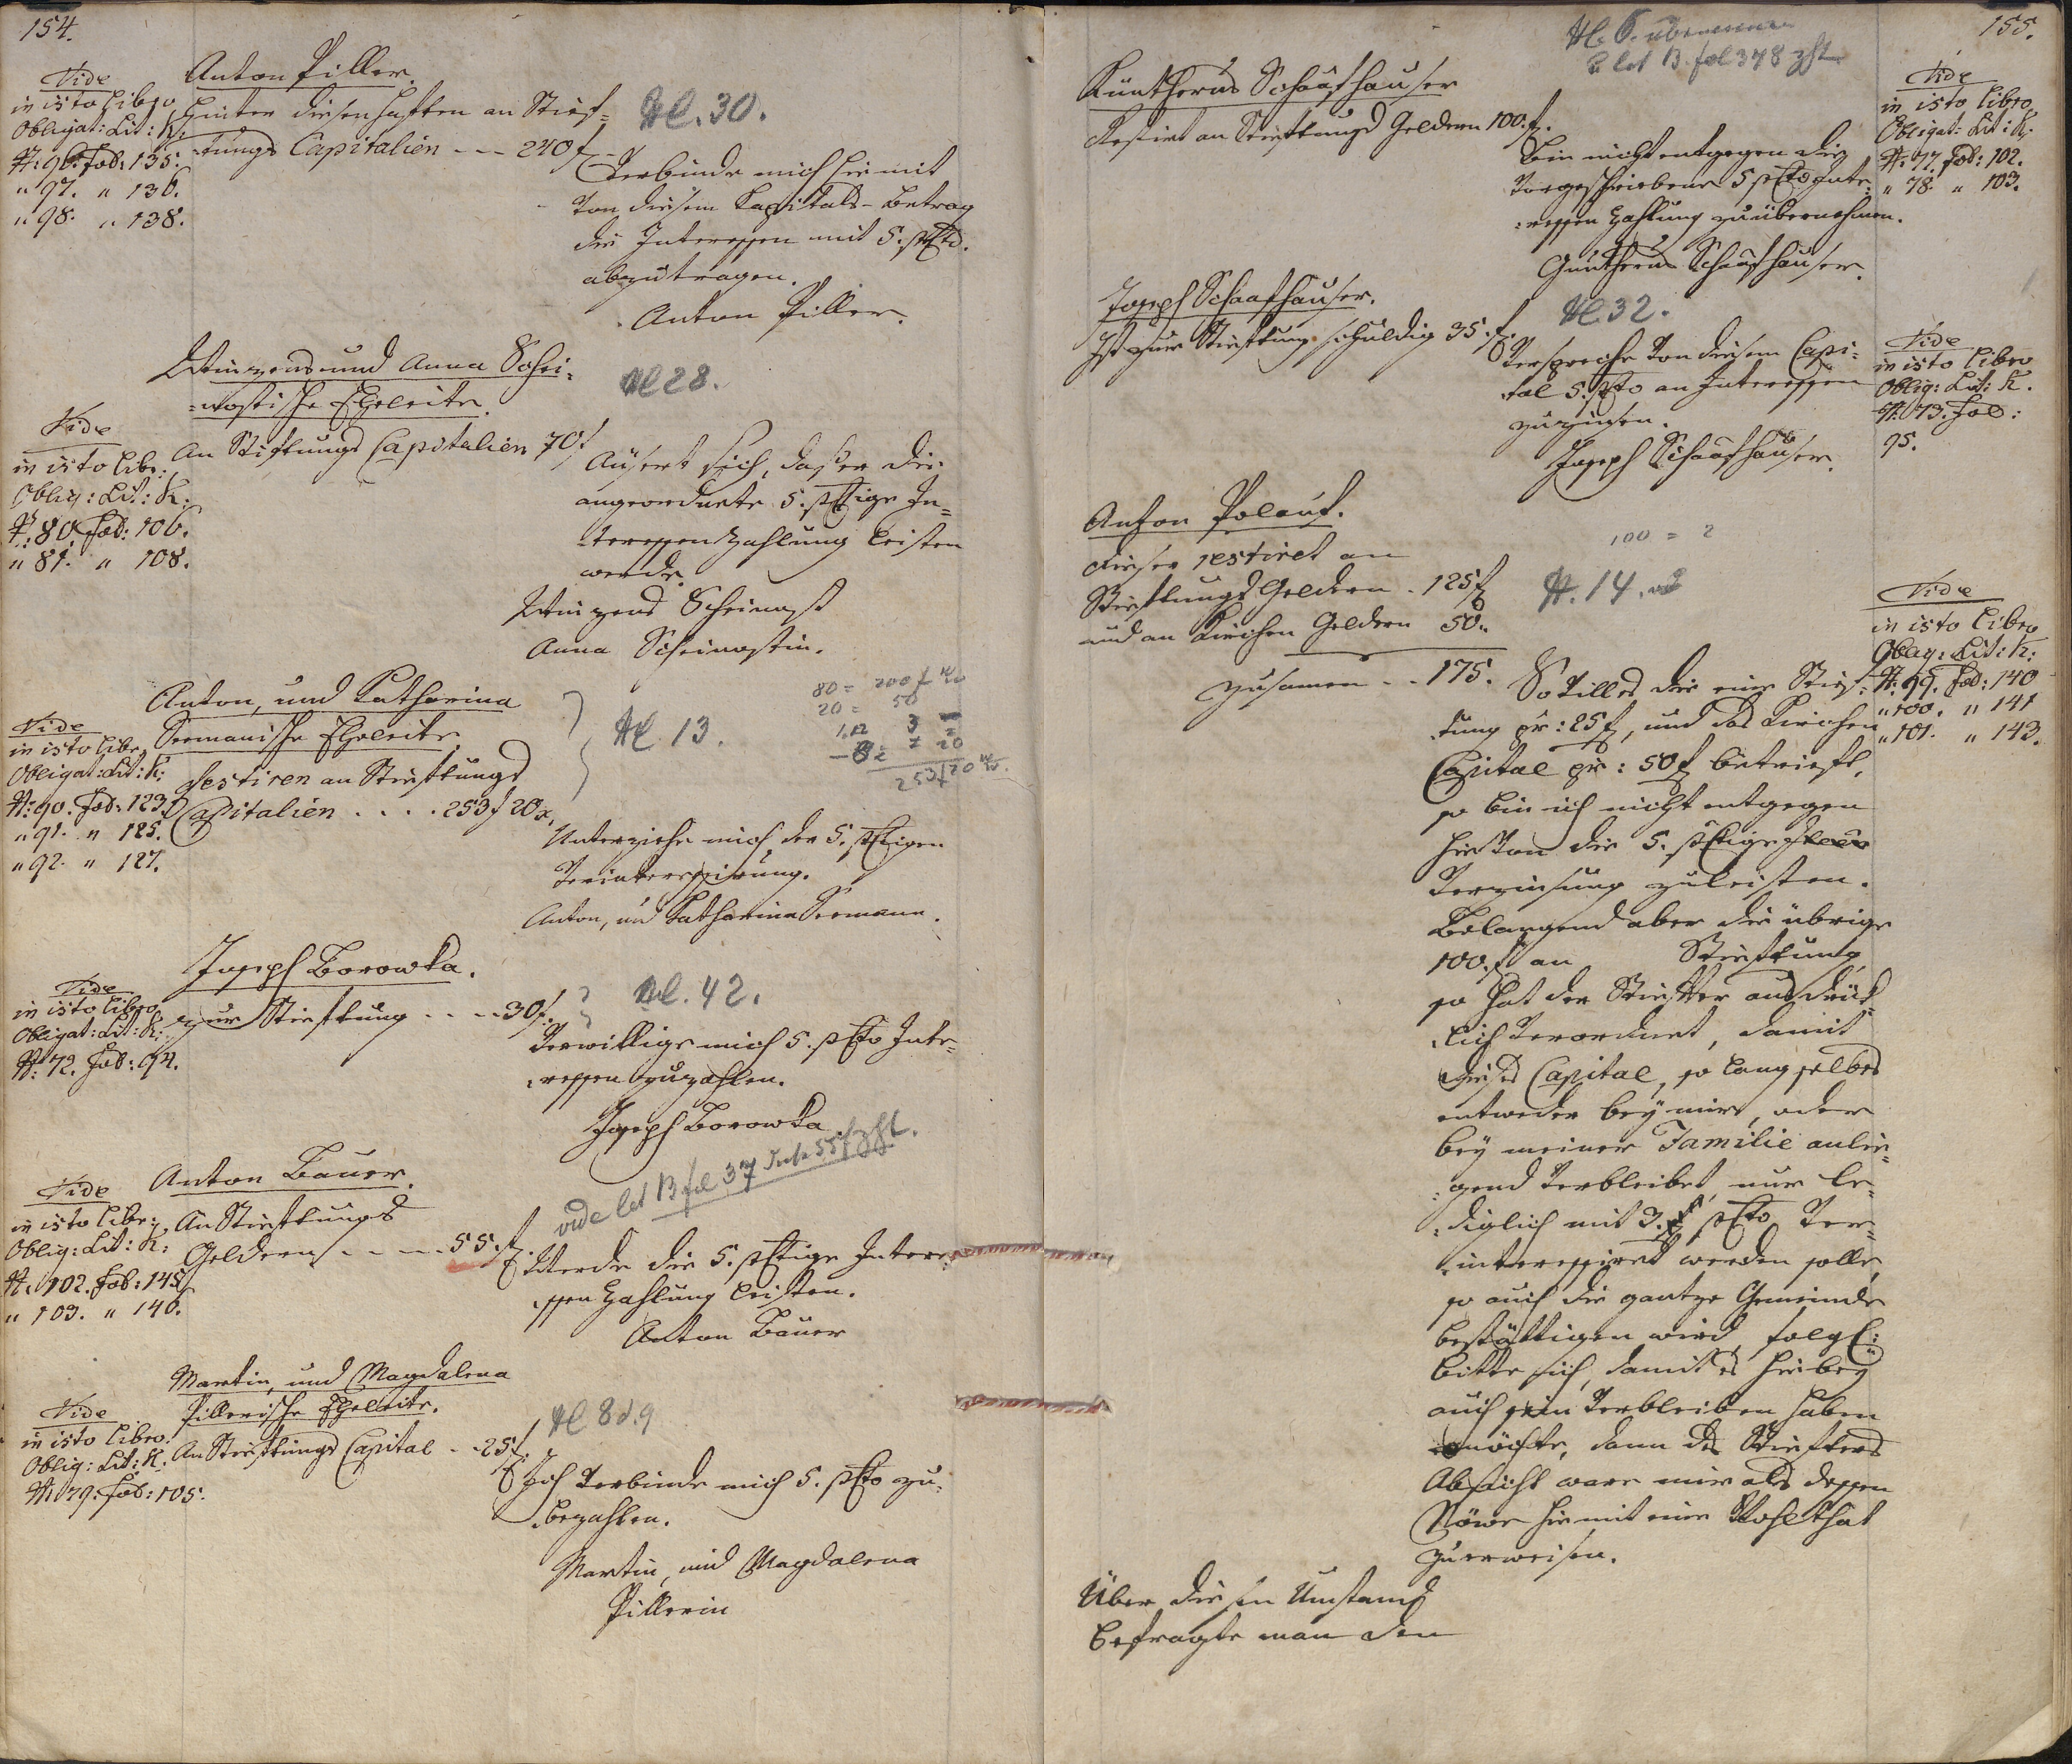 154.
Vide
in isto Libro
Obligat: Lit: K:
N: 96. Fol: 135.
" 97. " 136.
" 98. " 138.
Anton Piller.
Hinter diesen haften an Stief=
tungs Capitalien --- 240 f
Nc. 30.
Verbinde mich hiemit
von diesem Kapitals-Betrag
die Interessen mit 5. pCto.
abzutragen.
Anton Piller.
Vide
in isto Libr:
Oblig: Lit: K.
N: 80. Fol: 106.
" 81. " 108.
Winzens und Anna Schei=
=nostische Eheleite.
An Stiftungs Capitalien 70 f
Nc 28.
Äusert sich, daß er die
angeordnete 5. pCtige In=
teressen Zahlung leisten
werde.
Winzens Scheinost
Anna Scheinostin.
Vide
in isto Libr
Obligat: Lit: K:
N: 90. Fol: 123.
" 91. " 125.
" 92. " 127.
Anton, und Katharina
Seemanische Eheleite
restiren an Stieftungs
Capitalien .... 253 f 20 x.
Nc. 13.
80 = 200 f
20 = 50
3
253 f 20
Unterziehe mich der 5. pCtigen
Verinteressirung.
Anton, und Katharina Seemann.
Vide
in isto Libro
Obligat: Lit: K:
N: 72. Fol: 94.
Joseph Borowka.
zur Stieftung ---- 30 f.
Nc. 42.
Verwillige mich 5. pCto Inte=
ressen zuzahlen.
Joseph Borowka
Vide
in isto Libr:
Oblig: Lit: K:
N: 102. Fol: 145
" 103. " 146.
Anton Bauer.
An Stieftungs
Geldern ---- 55. f
vide let B fol 37
Werde die 5. pCtige Intere=
ssen Zahlung leisten.
Anton Bauer
Vide
in isto Libro.
Oblig: Lit: K.
N: 79. Fol: 105.
Martin, und Magdalena
Pillerische Eheleite.
An Stieftungs Capital -- 25 f.
Nc 8 d. 9
Ich verbinde mich 5. pCto zu=
bezahlen.
Martin, und Magdalena
Pillerin
155.
Nc. 6.
let B. fol 348
Küntherus Schaafhauser
Restirt an Stieftungs Geldern 100. f.
Bin nicht entgegen die
vorgeschriebene 5 pCto Inte=
ressen Zahlung zuübernehmen.
Güntherus Schaafhauser.
Vide
in isto Libro
Obligat: Lit: K.
N: 77 Fol: 102.
" 78. " 103.
Joseph Schaafhauser.
Ist zur Stieftung schuldig 35. f.
Nc 32.
Verspreche von diesem Capi=
tal 5. pCto an Interessen
zuzinsen.
Joseph Schaafhauser.
Vide
in isto Libro
Oblig: Lit: K.
N: 73. Fol:
95.
Anton Polauf.
dieser restiret an
Stieftungs Geldern . 125 f
und an Kirchen Geldern 50 "
zusamen .. 175.
100 = 2
N. 14.
So villes die eine Stief=
tung pr: 25 f, und das Kirchen
Capital pr: 50 f betrieft,
so bin ich nicht entgegen
hievon die 5. pCtige
Verzinsung zuleisten.
Belangend aber die übrige
100. f an Stieftung
so hat der Stiefter ausdrük=
lich verordnet, damit
dieses Capital, so lang selbes
entweder bey mir, oder
bey meiner Familie anlie=
gend verbleibet, nur le=
diglich mit 3. f pCto ver=
interessiret werden solle,
so auch die gantze Gemeinde
bestättigen wird, folgl:
bitte ich, damit es hiebey
auch sein Verbleiben haben
möchte, dann des Stiefters
Absicht ware mir als dessen
hiemit eine Wohlthat
zuerweisen.
Vide
in isto Libro
Oblig: Lit: K:
N: 99. Fol: 140
" 100. " 141
" 101. " 143.
Über diesen Umstand
befragte man den